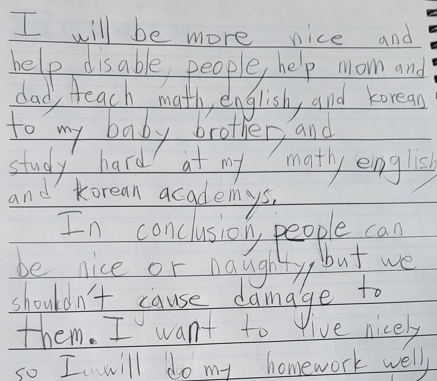 I will be more nice and
help disable, people, help mom and
dad, teach math, english, and korean
to my baby brother, and
study hard at my math, english
and korean academys.
In conclusion, people can
be nice or naughty, but we
shouldn't cause damage to
them. I want to live nicely
so I will do my homework well,